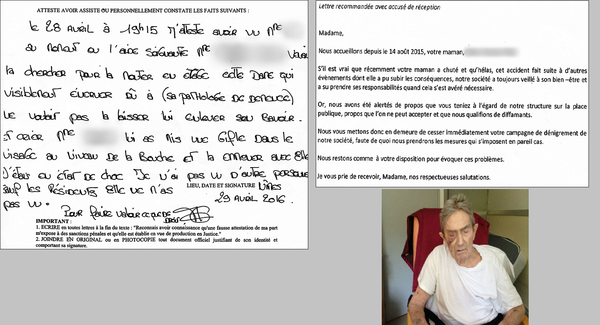 ATTESTE AVOIR ASSISTE OU PERSONNELLEMENT CONSTATE LES FAITS SUIVANTS :
Le 28 AVRIL à 19h15 J'atteste avoir vu Mme
au moment ou l'aide soignante Mme
la chercher pour la monter au étage cette Dame qui
visiblement énervée dû à (sa pathologie de Démence)
ne voulait pas la laisser lui enlever son Bavoir.
Mme lui as mis une Gifle Dans le
visage au niveau de la Bouche et la emmener avec elle
J'étais au état de choc Je n'ai pas vu d'autre personne
sauf les Résidents elle ne m'as
pas vu.
LIEU, DATE ET SIGNATURE
29 AVRIL 2016
Pour faire valoir ce que de Droit
IMPORTANT :
1. ECRIRE en toutes lettres à la fin du texte : "Reconnais avoir connaissance qu'une fausse attestation de ma part
m'expose à des sanctions pénales et qu'elle est établie en vue de production en Justice."
2. JOINDRE EN ORIGINAL ou en PHOTOCOPIE tout document officiel justifiant de son identité et
comportant sa signature.
Lettre recommandée avec accusé de réception
Madame,
Nous accueillons depuis le 14 août 2015, votre maman,
S'il est vrai que récemment votre maman a chuté et qu'hélas, cet accident fait suite à d'autres
évènements dont elle a pu subir les conséquences, notre société a toujours veillé à son bien –être et
a su prendre ses responsabilités quand cela s'est avéré nécessaire.
Or, nous avons été alertés de propos que vous teniez à l'égard de notre structure sur la place
publique, propos que l'on ne peut accepter et que nous qualifions de diffamants.
Nous vous mettons donc en demeure de cesser immédiatement votre campagne de dénigrement de
notre société, faute de quoi nous prendrons les mesures qui s'imposent en pareil cas.
Nous restons comme à votre disposition pour évoquer ces problèmes.
Je vous prie de recevoir, Madame, nos respectueuses salutations.